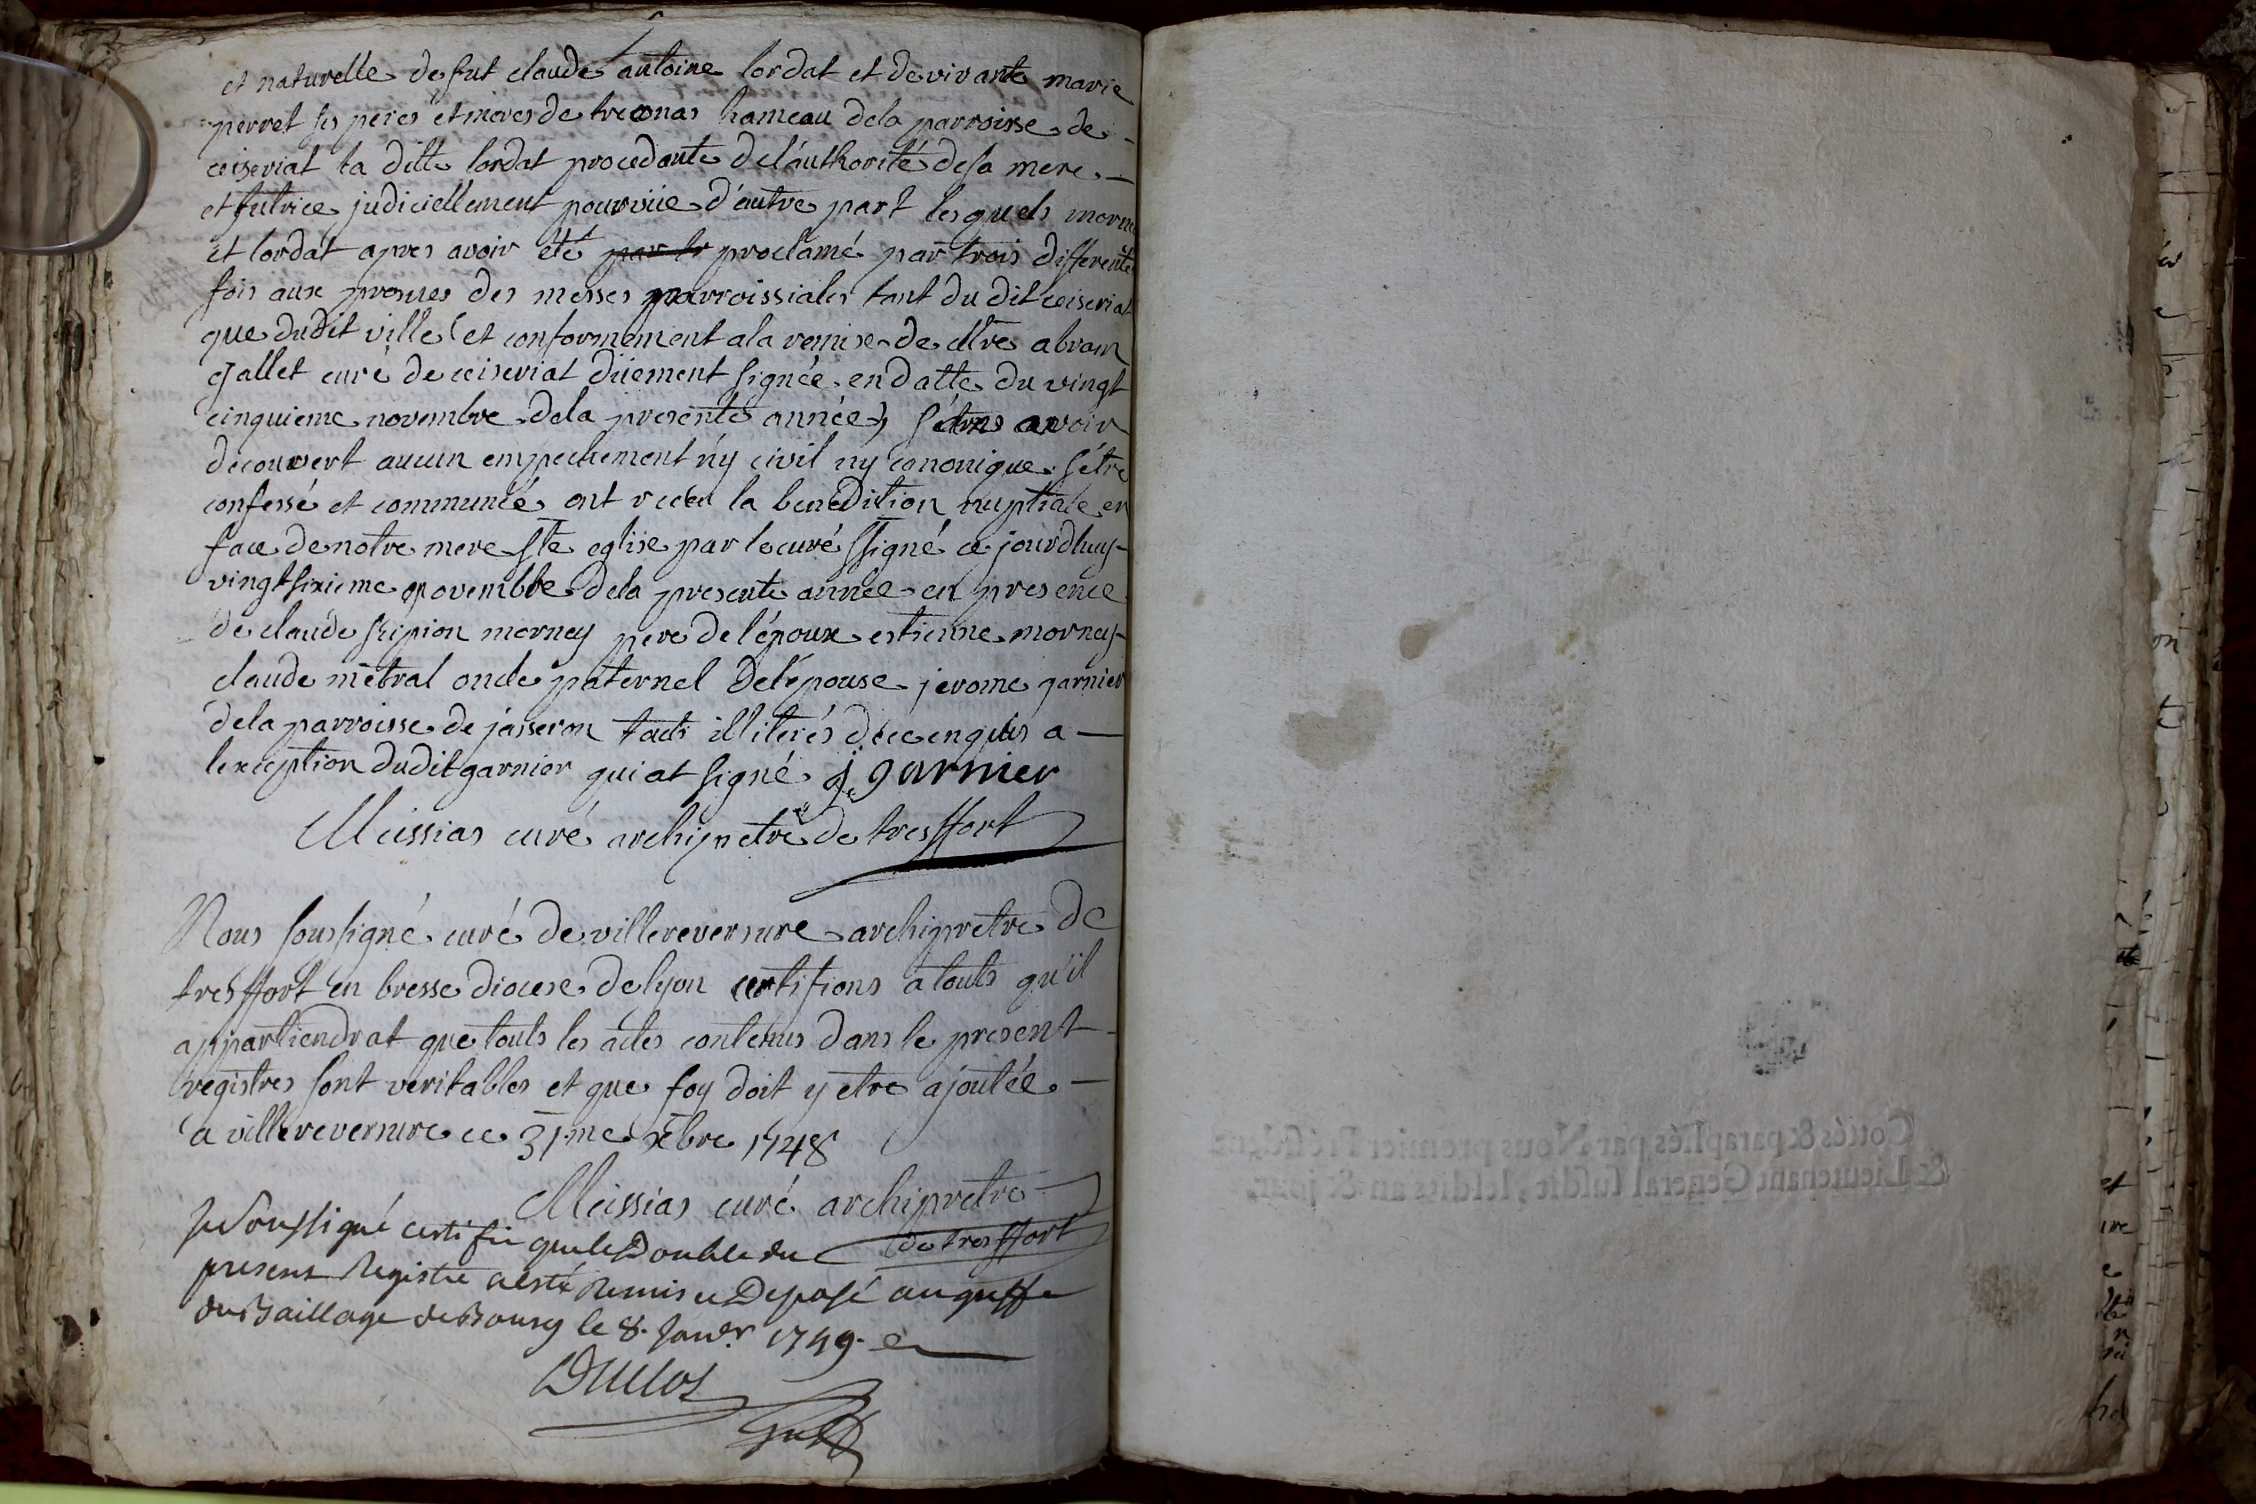 et naturelle de fut claude antoine lordat et de vivante marie
perret ses peres et meres de treconas hameau dela parroisse de
ceiseriat la ditte lordat procedante de l'authorité de sa mere
et tutrice judiciellement pourvüe d'autre part lesquels morney
et lordat apres avoir été par le proclamé par trois differente
fois aux prones des messes parroissiales tant du dit ceiseriat
que dudit ville (et conformement a la remise de Mre abram
gallet curé de ceiseriat düement signée en datte du vingt
cinquieme novembre dela presente année) sans avoir
decouvert aucun empechement ny civil ny canonique s'étre
confessé et communié ont receu la benedition nuptiale en
face de notre mere ste eglise par le curé ssigné ce jourdhuy
vingt sixieme novembre dela presente année en presence
de claude scipion morney pere de l'époux estienne morney
claude métral oncle paternel de l'épouse jerome garnier
dela parroisse de jasseron touts illiterés de ce enquis a
l'exception dudit garnier qui at signé j. garnier
Meissias curé archipretre de tresffort
Nous soussigné curé de villereversure archipretre de
tresffort en bresse diocese de lyon certifions a touts qu'il
appartiendrat que touts les actes contenus dans le present
registres sont veritables et que foy doit y etre ajoutée
a villereversure ce 31.me xbre 1748
Meissias curé archipretre
de tresffort
Je soussigné certifie que le Double du
present Registre a esté Remis et Deposé au greffe
du Baillage de Bourg le 8. Janvr 1749.
Cottés & paraphés par Nous premier Présid
& Lieutenant General susdit, lesdits an & jour.